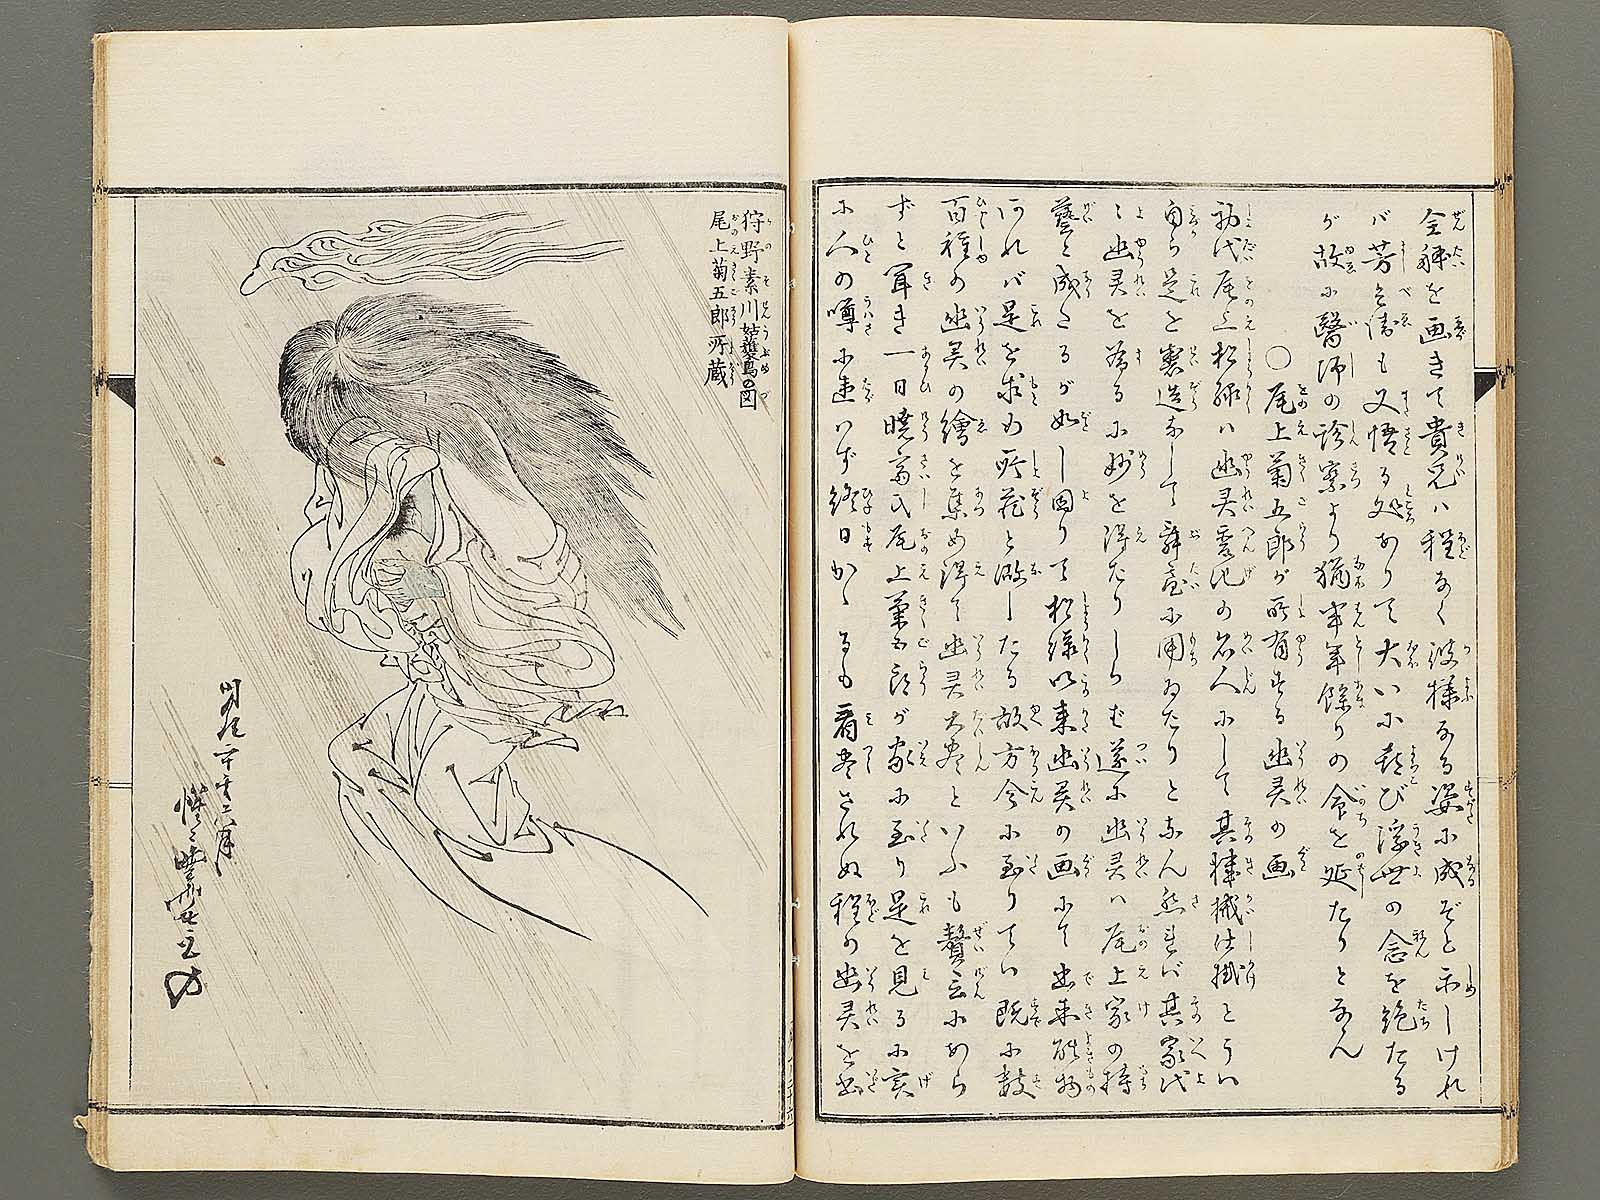 全躰を画きて貴兄ハ程なく彼様なる姿に成ぞと示しけれ
バ芳兵衛も又悟る処ありて大いに歓び浮世の念を絶たる
が故に醫師の診察より猶半年餘りの命を延たりとなん
〇尾上菊五郎が所有する幽灵の画
初代尾上松緑ハ幽灵変化の名人にして其機械仕掛とうハ
自ら是を製造なして舞台に用ゐたりとなん然れバ其家代
々幽灵を為るに妙を得たりしらむ遂に幽灵ハ尾上家の持
藝と成たるが如し因りて松緑以来幽灵の画にて出来能物
あれバ是を求め所蔵と做したる故方今に至りてハ既に数
百種の幽灵の繪を集め得て幽灵大盡といふも贅言にあら
ずと聞き一日暁斎氏尾上菊五郎が家に至り是を見るに実
に人の噂に違ハず終日かゝるも看尽されぬ程の幽灵を出
狩野素川姑獲鳥の図
尾上菊五郎所蔵